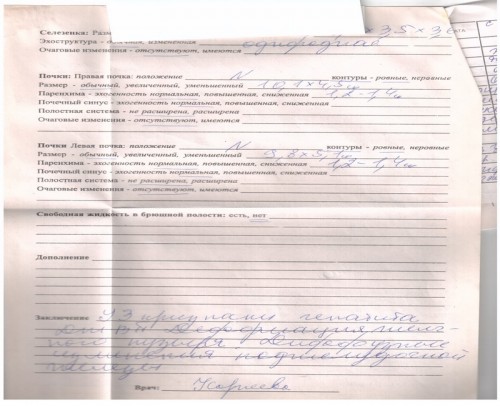 Селезенка: Раз 3,5 × 3 см
Эхоструктура - измененная однородная
Очаговые изменения - отсутствуют, имеются
Почки: Правая почка: положение N контуры - ровные, неровные
Размер - обычный, увеличенный, уменьшенный 10,1×4,5
Паренхима - эхогенность нормальная, повышенная, сниженная 1,2-1,4
Почечный синус - эхогенность нормальная, повышенная, сниженная
Полостная система - не расширена, расширена
Очаговые изменения - отсутствуют, имеются
Почки Левая почка: положение N контуры - ровные, неровные
Размер - обычный, увеличенный, уменьшенный 9,8×5,1
Паренхима - эхогенность нормальная, повышенная, сниженная 1,2-1,4
Почечный синус - эхогенность нормальная, повышенная, сниженная
Полостная система - не расширена, расширена
Очаговые изменения - отсутствуют, имеются
Свободная жидкость в брюшной полости: есть, нет
Дополнение
Заключение УЗ признаки гепатита
Деформация желч-
ного пузыря. Диффузные
изменения поджелудочной
железы
Врач: